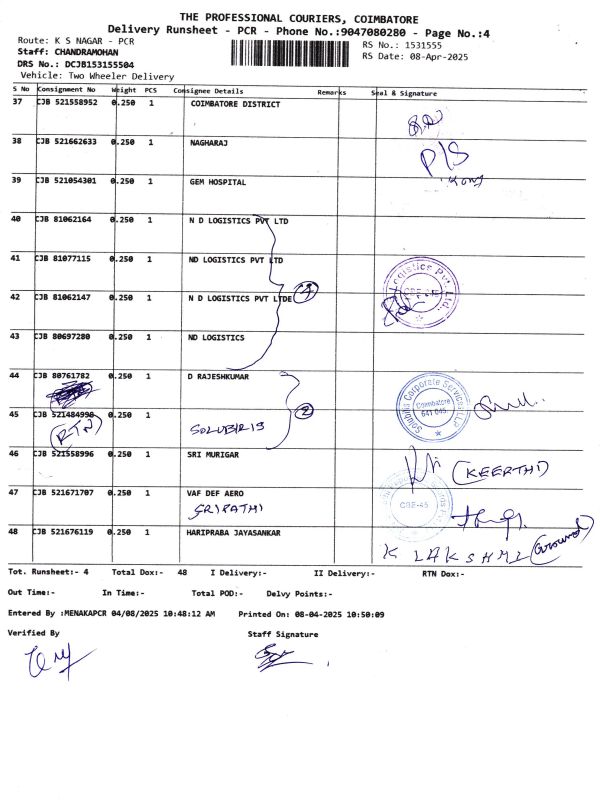 THE PROFESSIONAL COURIERS, COIMBATORE
Delivery Runsheet - PCR - Phone No.:9047080280 - Page No.:4
Route: K S NAGAR - PCR
RS No.: 1531555
Staff: CHANDRAMOHAN
RS Date: 08-Apr-2025
DRS No.: DCJB153155504
Vehicle: Two Wheeler Delivery
S No Consignment No Weight PCS Consignee Details Remarks Seal & Signature
37 CJB 521558952 0.250 1 COIMBATORE DISTRICT
38 CJB 521662633 0.250 1 NAGHARAJ P/S
39 CJB 521054301 0.250 1 GEM HOSPITAL
40 CJB 81062164 0.250 1 N D LOGISTICS PVT LTD
41 CJB 81077115 0.250 1 ND LOGISTICS PVT LTD
42 CJB 81062147 0.250 1 N D LOGISTICS PVT LTDE 4
Logistics Pvt. Ltd.
43 CJB 80697280 0.250 1 ND LOGISTICS
44 CJB 80761782 0.250 1 D RAJESHKUMAR
Solubiri Corporate Services LLP
Coimbatore
641 045
2
45 CJB 521484990 0.250 1 SOLUBIRIS
RTN
46 CJB 521558996 0.250 1 SRI MURIGAR (KEERTHI)
47 CJB 521671707 0.250 1 VAF DEF AERO
SRIPATHI
CBE-45
48 CJB 521676119 0.250 1 HARIPRABA JAYASANKAR K LAKSHMI (Ground)
Tot. Runsheet:- 4 Total Dox:- 48 I Delivery:- II Delivery:- RTN Dox:-
Out Time:- In Time:- Total POD:- Delvy Points:-
Entered By :MENAKAPCR 04/08/2025 10:48:12 AM Printed On: 08-04-2025 10:50:09
Verified By Staff Signature